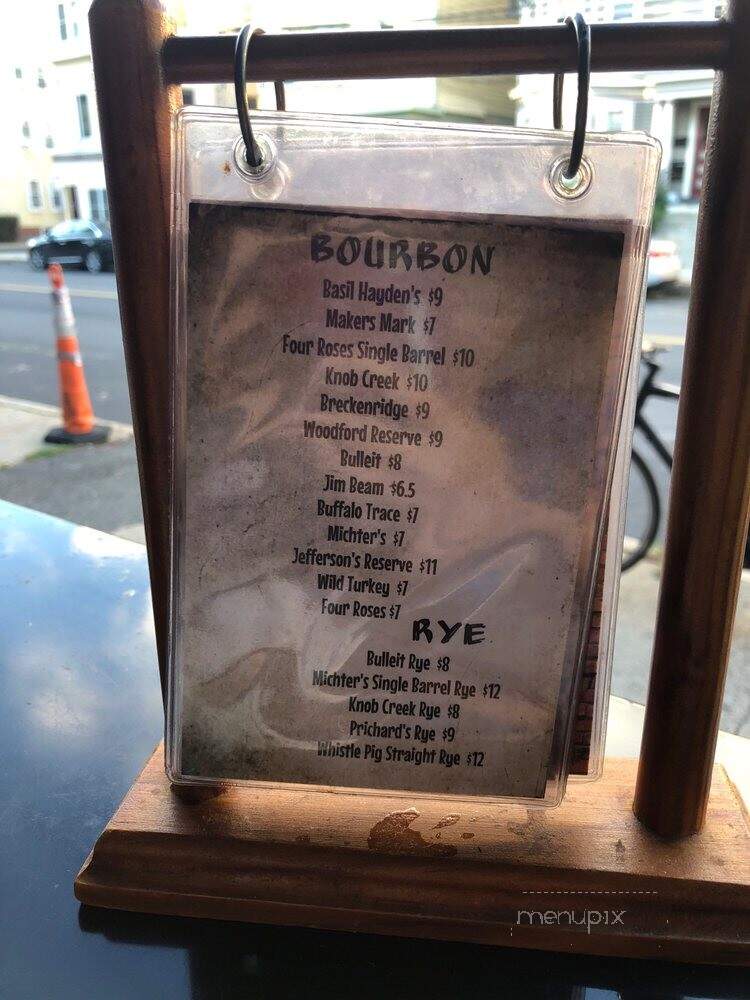 BOURBON
Basil Hayden's $9
Makers Mark $7
Four Roses Single Barrel $10
Knob Creek $10
Breckenridge $9
Woodford Reserve $9
Bulleit $8
Jim Beam $6.5
Buffalo Trace $7
Michter's $7
Jefferson's Reserve $11
Wild Turkey $7
Four Roses $7
RYE
Bulleit Rye $8
Michter's Single Barrel Rye $12
Knob Creek Rye $8
Prichard's Rye $9
Whistle Pig Straight Rye $12
menupix